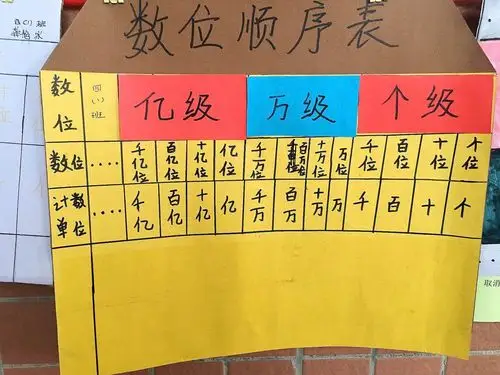 数位顺序表
四(1)班
数位 四(1)班 亿级 万级 个级
数位 …… 千亿位 百亿位 十亿位 亿位 千万位 百万位 十万位 万位 千位 百位 十位 个位
计数单位 …… 千亿 百亿 十亿 亿 千万 百万 十万 万 千 百 十 个
取消